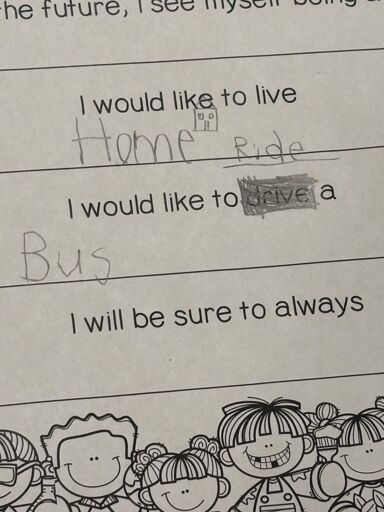 the future, I see myself being a
I would like to live
Home
Ride
I would like to drive a
Bus
I will be sure to always